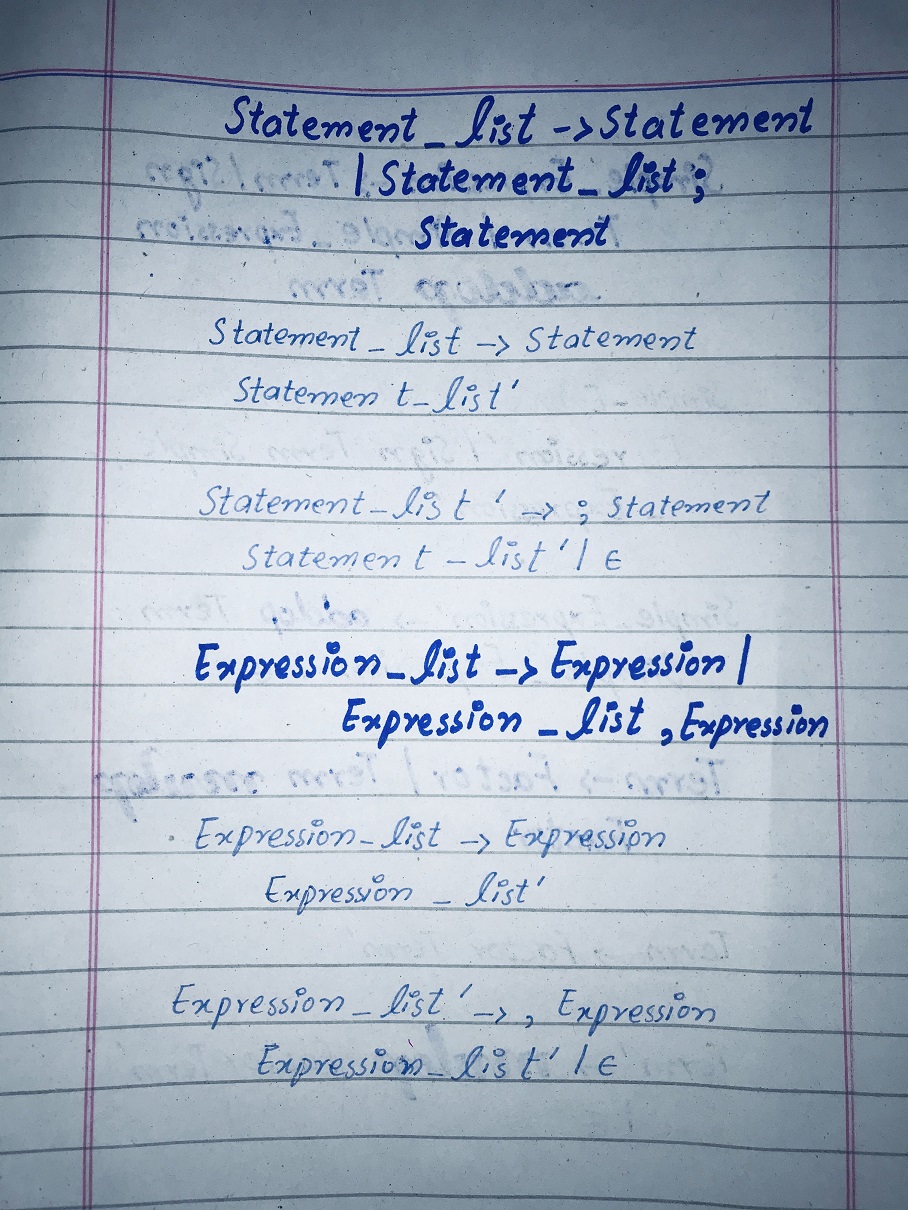 Statement_list -> Statement
| Statement_list ;
Statement
Statement_list -> Statement
Statement_list'
Statement_list' -> ; Statement
Statement_list' | ϵ
Expression_list -> Expression |
Expression_list , Expression
Expression_list -> Expression
Expression_list'
Expression_list' -> , Expression
Expression_list' | ϵ